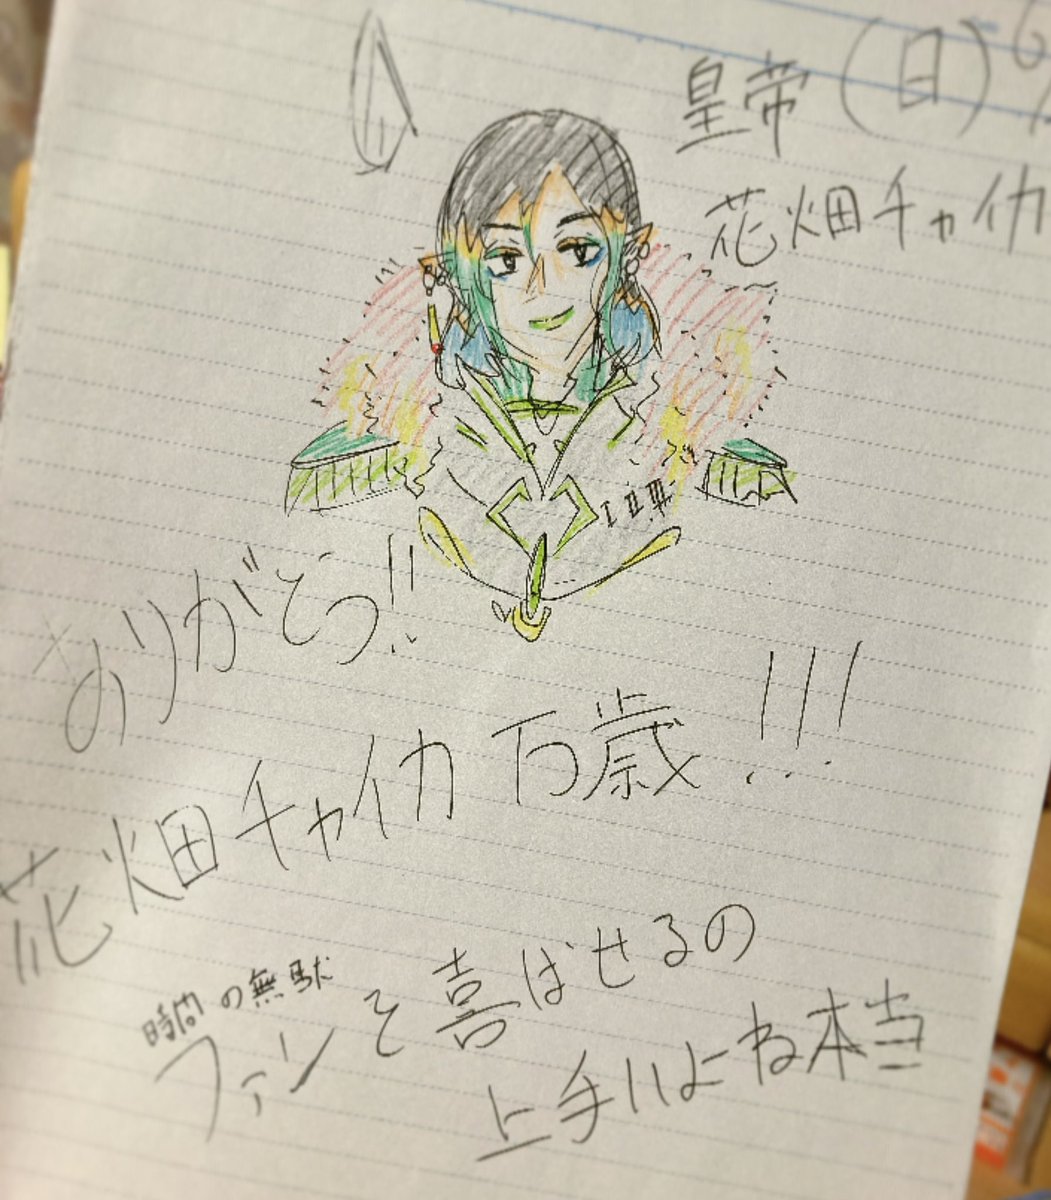 皇帝(日)
花畑チャイカ
I II III
ありがとう!!
花畑チャイカ 万歳!!!
時間の無駄
ファンを喜ばせるの
上手いよね本当